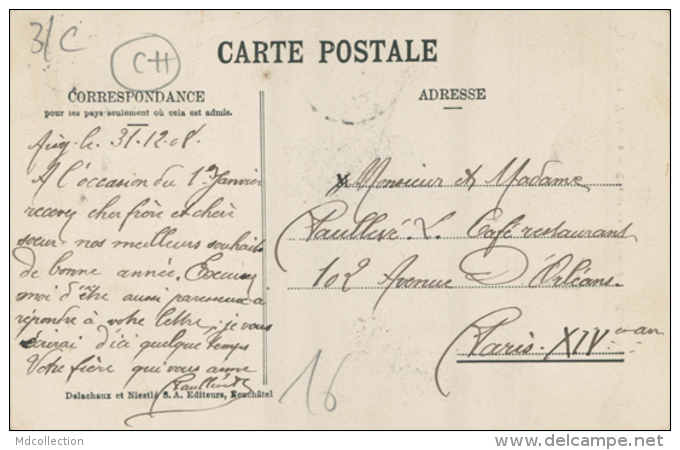 31/C
CH
CARTE POSTALE
CORRESPONDANCE
pour les pays seulement où cela est admis.
ADRESSE
le 31.12.08.
A l'occasion du 1er Janvier
recevez cher frère et chère
soeur nos meilleurs souhaits
de bonne année. Excusez
moi d'être aussi paresseux a
répondre à votre lettre, je vous
écrirai d'ici quelque temps
Votre frère qui vous aime
Monsieur et Madame
L. Café restaurant
102 Avenue D'Orléans.
Paris. XIV
16
Delachaux et Niestlé S. A. Editeurs, Neuchâtel
Mdcollection
www.delcampe.net